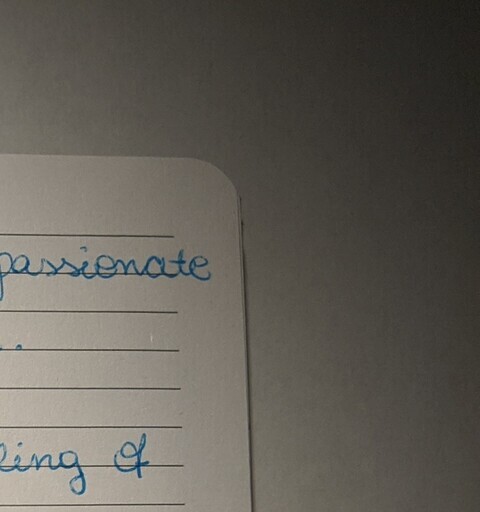 passionate
..
ling of